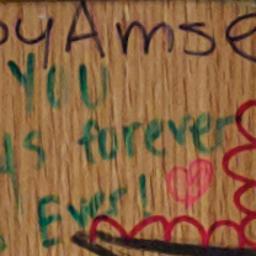 oyAmse
You
ys forever
Ever!